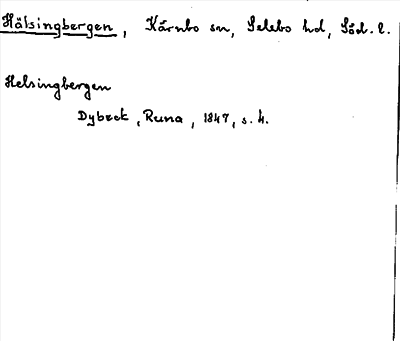 Hälsingbergen, Kärnbo sn, Selebo hd, Söd. l.
Helsingbergen
Dybeck, Runa, 1847, s. 4.